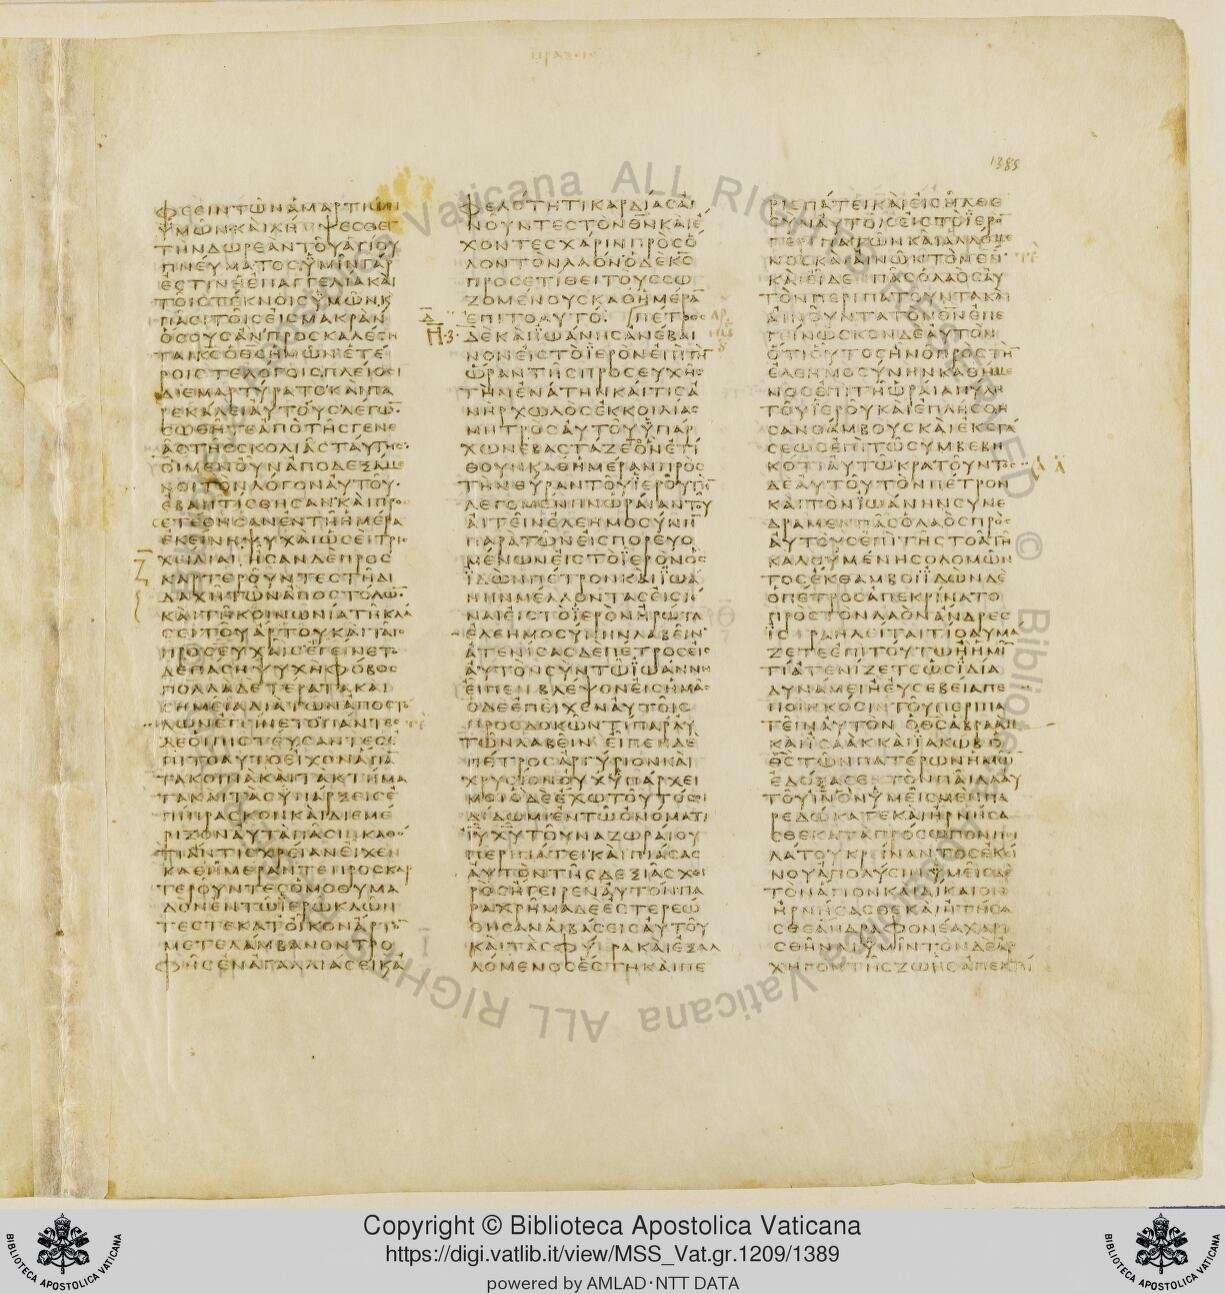 1385
ΦΕΣΙΝΤΩΝΑΜΑΡΤΙΩΝ
ΥΜΩΝΚΑΙΛΗΜΨΕΣΘΕ
ΤΗΝΔΩΡΕΑΝΤΟΥΑΓΙΟΥ
ΠΝΕΥΜΑΤΟΣΥΜΙΝΓΑΡ
ΕΣΤΙΝΗΕΠΑΓΓΕΛΙΑΚΑΙ
ΤΟΙΣΤΕΚΝΟΙΣΥΜΩΝΚ
ΠΑΣΙΤΟΙΣΕΙΣΜΑΚΡΑΝ
ΟΣΟΥΣΑΝΠΡΟΣΚΑΛΕΣΗ
ΤΑΙΚΣΟΘΣΗΜΩΝΕΤΕ
ΡΟΙΣΤΕΛΟΓΟΙΣΠΛΕΙΟΣΙ
ΔΙΕΜΑΡΤΥΡΑΤΟΚΑΙΠΑ
ΡΕΚΑΛΕΙΑΥΤΟΥΣΛΕΓΩ
ΣΩΘΗΤΕΑΠΟΤΗΣΓΕΝΕ
ΑΣΤΗΣΣΚΟΛΙΑΣΤΑΥΤΗΣ
ΟΙΜΕΝΟΥΝΑΠΟΔΕΞΑΜΕ
ΝΟΙΤΟΝΛΟΓΟΝΑΥΤΟΥ
ΕΒΑΠΤΙΣΘΗΣΑΝΚΑΙΠΡΟ
ΣΕΤΕΘΗΣΑΝΕΝΤΗΗΜΕΡΑ
ΕΚΕΙΝΗΨΥΧΑΙΩΣΕΙΤΡΙ
ΧΕΙΛΙΑΙΗΣΑΝΔΕΠΡΟΣ
ΚΑΡΤΕΡΟΥΝΤΕΣΤΗΔΙ
ΔΑΧΗΤΩΝΑΠΟΣΤΟΛΩ
ΚΑΙΤΗΚΟΙΝΩΝΙΑΤΗΚΛΑ
ΣΕΙΤΟΥΑΡΤΟΥΚΑΙΤΑΙΣ
ΠΡΟΣΕΥΧΑΙΣΕΓΕΙΝΕΤΟ
ΔΕΠΑΣΗΨΥΧΗΦΟΒΟΣ
ΠΟΛΛΑΔΕΤΕΡΑΤΑΚΑΙ
ΣΗΜΕΙΑΔΙΑΤΩΝΑΠΟΣΤΟ
ΛΩΝΕΓΙΝΕΤΟΠΑΝΤΕΣ
ΔΕΟΙΠΙΣΤΕΥΣΑΝΤΕΣΕ
ΠΙΤΟΑΥΤΟΕΙΧΟΝΑΠΑ
ΤΑΚΟΙΝΑΚΑΙΤΑΚΤΗΜΑ
ΤΑΚΑΙΤΑΣΥΠΑΡΞΕΙΣΕ
ΠΙΠΡΑΣΚΟΝΚΑΙΔΙΕΜΕ
ΡΙΖΟΝΑΥΤΑΠΑΣΙΝΚΑΘΟ
ΤΙΑΝΤΙΣΧΡΕΙΑΝΕΙΧΕΝ
ΚΑΘΗΜΕΡΑΝΤΕΠΡΟΣΚΑΡ
ΤΕΡΟΥΝΤΕΣΟΜΟΘΥΜΑ
ΔΟΝΕΝΤΩΙΕΡΩΚΛΩΝ
ΤΕΣΤΕΚΑΤΟΙΚΟΝΑΡΤΟ
ΜΕΤΕΛΑΜΒΑΝΟΝΤΡΟ
ΦΗΣΕΝΑΓΑΛΛΙΑΣΕΙΚΑ
Ζ
ΦΕΛΟΤΗΤΙΚΑΡΔΙΑΣΑΙ
ΝΟΥΝΤΕΣΤΟΝΘΝΚΑΙΕ
ΧΟΝΤΕΣΧΑΡΙΝΠΡΟΣΟ
ΛΟΝΤΟΝΛΑΟΝΟΔΕΚΣ
ΠΡΟΣΕΤΙΘΕΙΤΟΥΣΣΩ
ΖΟΜΕΝΟΥΣΚΑΘΗΜΕΡΑ
ΕΠΙΤΟΑΥΤΟ ΠΕΤΡΟΣ
ΔΕΚΑΙΙΩΑΝΗΣΑΝΕΒΑΙ
ΝΟΝΕΙΣΤΟΙΕΡΟΝΕΠΙΤΗ
ΩΡΑΝΤΗΣΠΡΟΣΕΥΧΗΣ
ΤΗΝΕΝΑΤΗΝΚΑΙΤΙΣΑ
ΝΗΡΧΩΛΟΣΕΚΚΟΙΛΙΑΣ
ΜΗΤΡΟΣΑΥΤΟΥΥΠΑΡ
ΧΩΝΕΒΑΣΤΑΖΕΟΝΕΤΙ
ΘΟΥΝΚΑΘΗΜΕΡΑΝΠΡΟΣ
ΤΗΝΘΥΡΑΝΤΟΥΙΕΡΟΥΤΗ
ΛΕΓΟΜΕΝΗΝΩΡΑΙΑΝΤΟΥ
ΑΙΤΕΙΝΕΛΕΗΜΟΣΥΝΗ
ΠΑΡΑΤΩΝΕΙΣΠΟΡΕΥΟ
ΜΕΝΩΝΕΙΣΤΟΙΕΡΟΝΟΣ
ΙΔΩΝΠΕΤΡΟΝΚΑΙΙΩΑ
ΝΗΝΜΕΛΛΟΝΤΑΣΕΙΣΙΕ
ΝΑΙΕΙΣΤΟΙΕΡΟΝΗΡΩΤΑ
ΕΛΕΗΜΟΣΥΝΗΝΛΑΒΕΙΝ
ΑΤΕΝΙΣΑΣΔΕΠΕΤΡΟΣΕΙΣ
ΑΥΤΟΝΣΥΝΤΩΙΩΑΝΝΗ
ΕΙΠΕΝΒΛΕΨΟΝΕΙΣΗΜΑΣ
ΟΔΕΕΠΕΙΧΕΝΑΥΤΟΙΣ
ΠΡΟΣΔΟΚΩΝΤΙΠΑΡΑΥ
ΤΩΝΛΑΒΕΙΝΕΙΠΕΝΔΕ
ΠΕΤΡΟΣΑΡΓΥΡΙΟΝΚΑΙ
ΧΡΥΣΙΟΝΟΥΧΥΠΑΡΧΕΙ
ΜΟΙΟΔΕΕΧΩΤΟΥΤΟΣΟΙ
ΔΙΔΩΜΙΕΝΤΩΟΝΟΜΑΤΙ
ΙΥΧΥΤΟΥΝΑΖΩΡΑΙΟΥ
ΠΕΡΙΠΑΤΕΙΚΑΙΠΙΑΣΑΣ
ΑΥΤΟΝΤΗΣΔΕΞΙΑΣΧΕΙ
ΡΟΣΗΓΕΙΡΕΝΑΥΤΟΝΠΑ
ΡΑΧΡΗΜΑΔΕΕΣΤΕΡΕΩ
ΘΗΣΑΝΑΙΒΑΣΕΙΣΑΥΤΟΥ
ΚΑΙΤΑΣΦΥΔΡΑΚΑΙΕΞΑΛ
ΛΟΜΕΝΟΣΕΣΤΗΚΑΙΠΕ
ΡΙΕΠΑΤΕΙΚΑΙΕΙΣΗΛΘΕ
ΣΥΝΑΥΤΟΙΣΕΙΣΤΟΙΕΡΟ
ΠΕΡΙΠΑΤΩΝΚΑΙΑΛΛΟΜΕ
ΝΟΣΚΑΙΑΙΝΩΝΤΟΝΘΝ
ΚΑΙΕΙΔΕΠΑΣΟΛΑΟΣΑΥ
ΤΟΝΠΕΡΙΠΑΤΟΥΝΤΑΚΑΙ
ΑΙΝΟΥΝΤΑΤΟΝΘΝΕΠΕ
ΓΕΙΝΩΣΚΟΝΔΕΑΥΤΟΝ
ΟΤΙΟΥΤΟΣΗΝΟΠΡΟΣΤΗ
ΕΛΕΗΜΟΣΥΝΗΝΚΑΘΗΜΕ
ΝΟΣΕΠΙΤΗΩΡΑΙΑΠΥΛΗ
ΤΟΥΙΕΡΟΥΚΑΙΕΠΛΗΣΘΗ
ΣΑΝΘΑΜΒΟΥΣΚΑΙΕΚΣΤΑ
ΣΕΩΣΕΠΙΤΩΣΥΜΒΕΒΗ
ΚΟΤΙΑΥΤΩΚΡΑΤΟΥΝΤΟΣ
ΔΕΑΥΤΟΥΤΟΝΠΕΤΡΟΝ
ΚΑΙΤΟΝΙΩΑΝΗΝΣΥΝΕ
ΔΡΑΜΕΝΠΑΣΟΛΑΟΣΠΡΟΣ
ΑΥΤΟΥΣΕΠΙΤΗΣΤΟΑΤΗ
ΚΑΛΟΥΜΕΝΗΣΟΛΟΜΩΝ
ΤΟΣΕΚΘΑΜΒΟΙΙΔΩΝΔΕ
ΟΠΕΤΡΟΣΑΠΕΚΡΙΝΑΤΟ
ΠΡΟΣΤΟΝΛΑΟΝΑΝΔΡΕΣ
ΙΣΡΑΗΛΕΙΤΑΙΤΙΘΑΥΜΑ
ΖΕΤΕΕΠΙΤΟΥΤΩΗΗΜΙ
ΤΙΑΤΕΝΙΖΕΤΕΩΣΙΔΙΑ
ΔΥΝΑΜΕΙΗΕΥΣΕΒΕΙΑΠΕ
ΠΟΙΗΚΟΣΙΝΤΟΥΠΕΡΙΠΑ
ΤΕΙΝΑΥΤΟΝΟΘΣΑΒΡΑΑΜ
ΚΑΙΙΣΑΑΚΚΑΙΙΑΚΩΒΟ
ΘΣΤΩΝΠΑΤΕΡΩΝΗΜΩ
ΕΔΟΞΑΣΕΝΤΟΝΠΑΙΔΑΑΥ
ΤΟΥΙΝΟΝΥΜΕΙΣΜΕΝΠΑ
ΡΕΔΩΚΑΤΕΚΑΙΗΡΝΗΣΑ
ΣΘΕΚΑΤΑΠΡΟΣΩΠΟΝΠΕΙ
ΛΑΤΟΥΚΡΕΙΝΑΝΤΟΣΕΚΕΙ
ΝΟΥΑΠΟΛΥΕΙΝΥΜΕΙΣΔΕ
ΤΟΝΑΓΙΟΝΚΑΙΔΙΚΑΙΟΝ
ΗΡΝΗΣΑΣΘΕΚΑΙΗΤΗΣΑ
ΣΘΕΑΝΔΡΑΦΟΝΕΑΧΑΡΙ
ΣΘΗΝΑΙΥΜΙΝΤΟΝΔΕΑΡ
ΧΗΓΟΝΤΗΣΖΩΗΣΑΠΕΚΤΕΙ
Vaticana ALL RIGHTS RESERVED © Biblioteca Vaticana ALL RIGHTS
BIBLIOTECA APOSTOLICA VATICANA
Copyright © Biblioteca Apostolica Vaticana
https://digi.vatlib.it/view/MSS_Vat.gr.1209/1389
powered by AMLAD·NTT DATA
BIBLIOTECA APOSTOLICA VATICANA